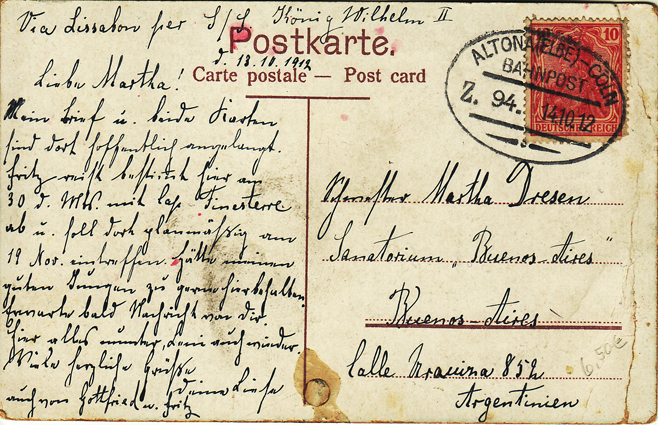 Via Lissabon per S/S. König Wilhelm II
Postkarte.
d. 13.10.1912
Carte postale — Post card
Liebe Martha!
Mein Brief u. beide Karten
sind dort hoffentlich angelangt.
Fritz reist bestimmt hier am
30 d. Mts. mit Cap Finesterre
ab u. soll dort planmäßig am
19 Nov. eintreffen. Hätte meinen
guten Jungen zu gerne hierbehalten.
Erwarte bald Nachricht von dir.
hier alles munter, Leni auch wieder.
Viele herzliche Grüße
deine Liese
auch von Gottfried u. Fritz
10
DEUTSCHES REICH
ALTONA(ELBE)-CÖLN
BAHNPOST
Z. 94.
14.10.12
Schwester Martha Dresen
Sanatorium „Buenos-Aires"
Buenos-Aires
Calle 852
Argentinien
6,50€